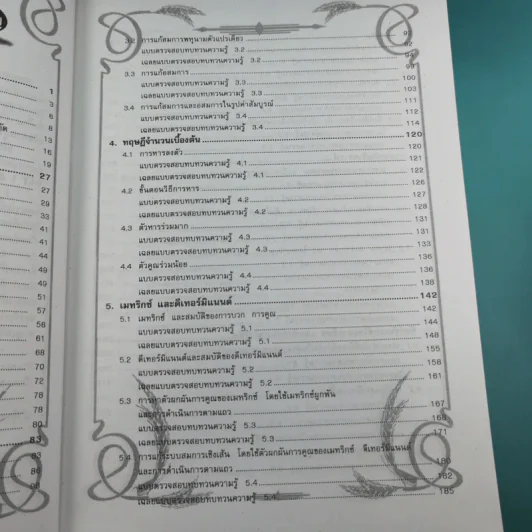 1
3
6
8
13
16
19
27
27
29
33
41
41
44
49
49
51
57
58
60
68
70
72
78
78
80
83
83
86
3.2 การแก้สมการพหุนามตัวแปรเดียว
แบบตรวจสอบทบทวนความรู้ 3.2 92
เฉลยแบบตรวจสอบทบทวนความรู้ 3.2
3.3 การแก้อสมการ
แบบตรวจสอบทบทวนความรู้ 3.3 100
เฉลยแบบตรวจสอบทบทวนความรู้ 3.3 103
3.4 การแก้สมการและอสมการในรูปค่าสัมบูรณ์ 111
แบบตรวจสอบทบทวนความรู้ 3.4 112
เฉลยแบบตรวจสอบทบทวนความรู้ 3.4 114
4. ทฤษฎีจำนวนเบื้องต้น 120
4.1 การหารลงตัว 120
แบบตรวจสอบทบทวนความรู้ 4.1 121
เฉลยแบบตรวจสอบทบทวนความรู้ 4.1 122
4.2 ขั้นตอนวิธีการหาร 126
แบบตรวจสอบทบทวนความรู้ 4.2 127
เฉลยแบบตรวจสอบทบทวนความรู้ 4.2 128
4.3 ตัวหารร่วมมาก 131
แบบตรวจสอบทบทวนความรู้ 4.3 131
เฉลยแบบตรวจสอบทบทวนความรู้ 4.3 133
4.4 ตัวคูณร่วมน้อย 136
แบบตรวจสอบทบทวนความรู้ 4.4 136
เฉลยแบบตรวจสอบทบทวนความรู้ 4.4 138
5. เมทริกซ์ และดีเทอร์มิแนนต์ 142
5.1 เมทริกซ์ และสมบัติของการบวก การคูณ 142
แบบตรวจสอบทบทวนความรู้ 5.1 144
เฉลยแบบตรวจสอบทบทวนความรู้ 5.1 148
5.2 ดีเทอร์มิแนนต์และสมบัติของดีเทอร์มิแนนต์ 155
แบบตรวจสอบทบทวนความรู้ 5.2 158
เฉลยแบบตรวจสอบทบทวนความรู้ 5.2 161
5.3 การหาตัวผกผันการคูณของเมทริกซ์ โดยใช้เมทริกซ์ผูกพัน
และการดำเนินการตามแถว 167
แบบตรวจสอบทบทวนความรู้ 5.3 168
เฉลยแบบตรวจสอบทบทวนความรู้ 5.3 171
5.4 การแก้ระบบสมการเชิงเส้น โดยใช้ตัวผกผันการคูณของเมทริกซ์ ดีเทอร์มิแนนต์
และการดำเนินการตามแถว 180
แบบตรวจสอบทบทวนความรู้ 5.4 182
เฉลยแบบตรวจสอบทบทวนความรู้ 5.4 185